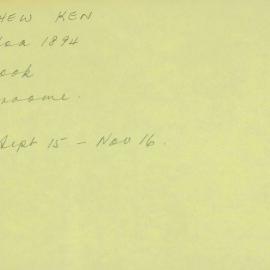 HEW KEN
oa 1894
ook
roome.
Sept 15 - Nov 16.